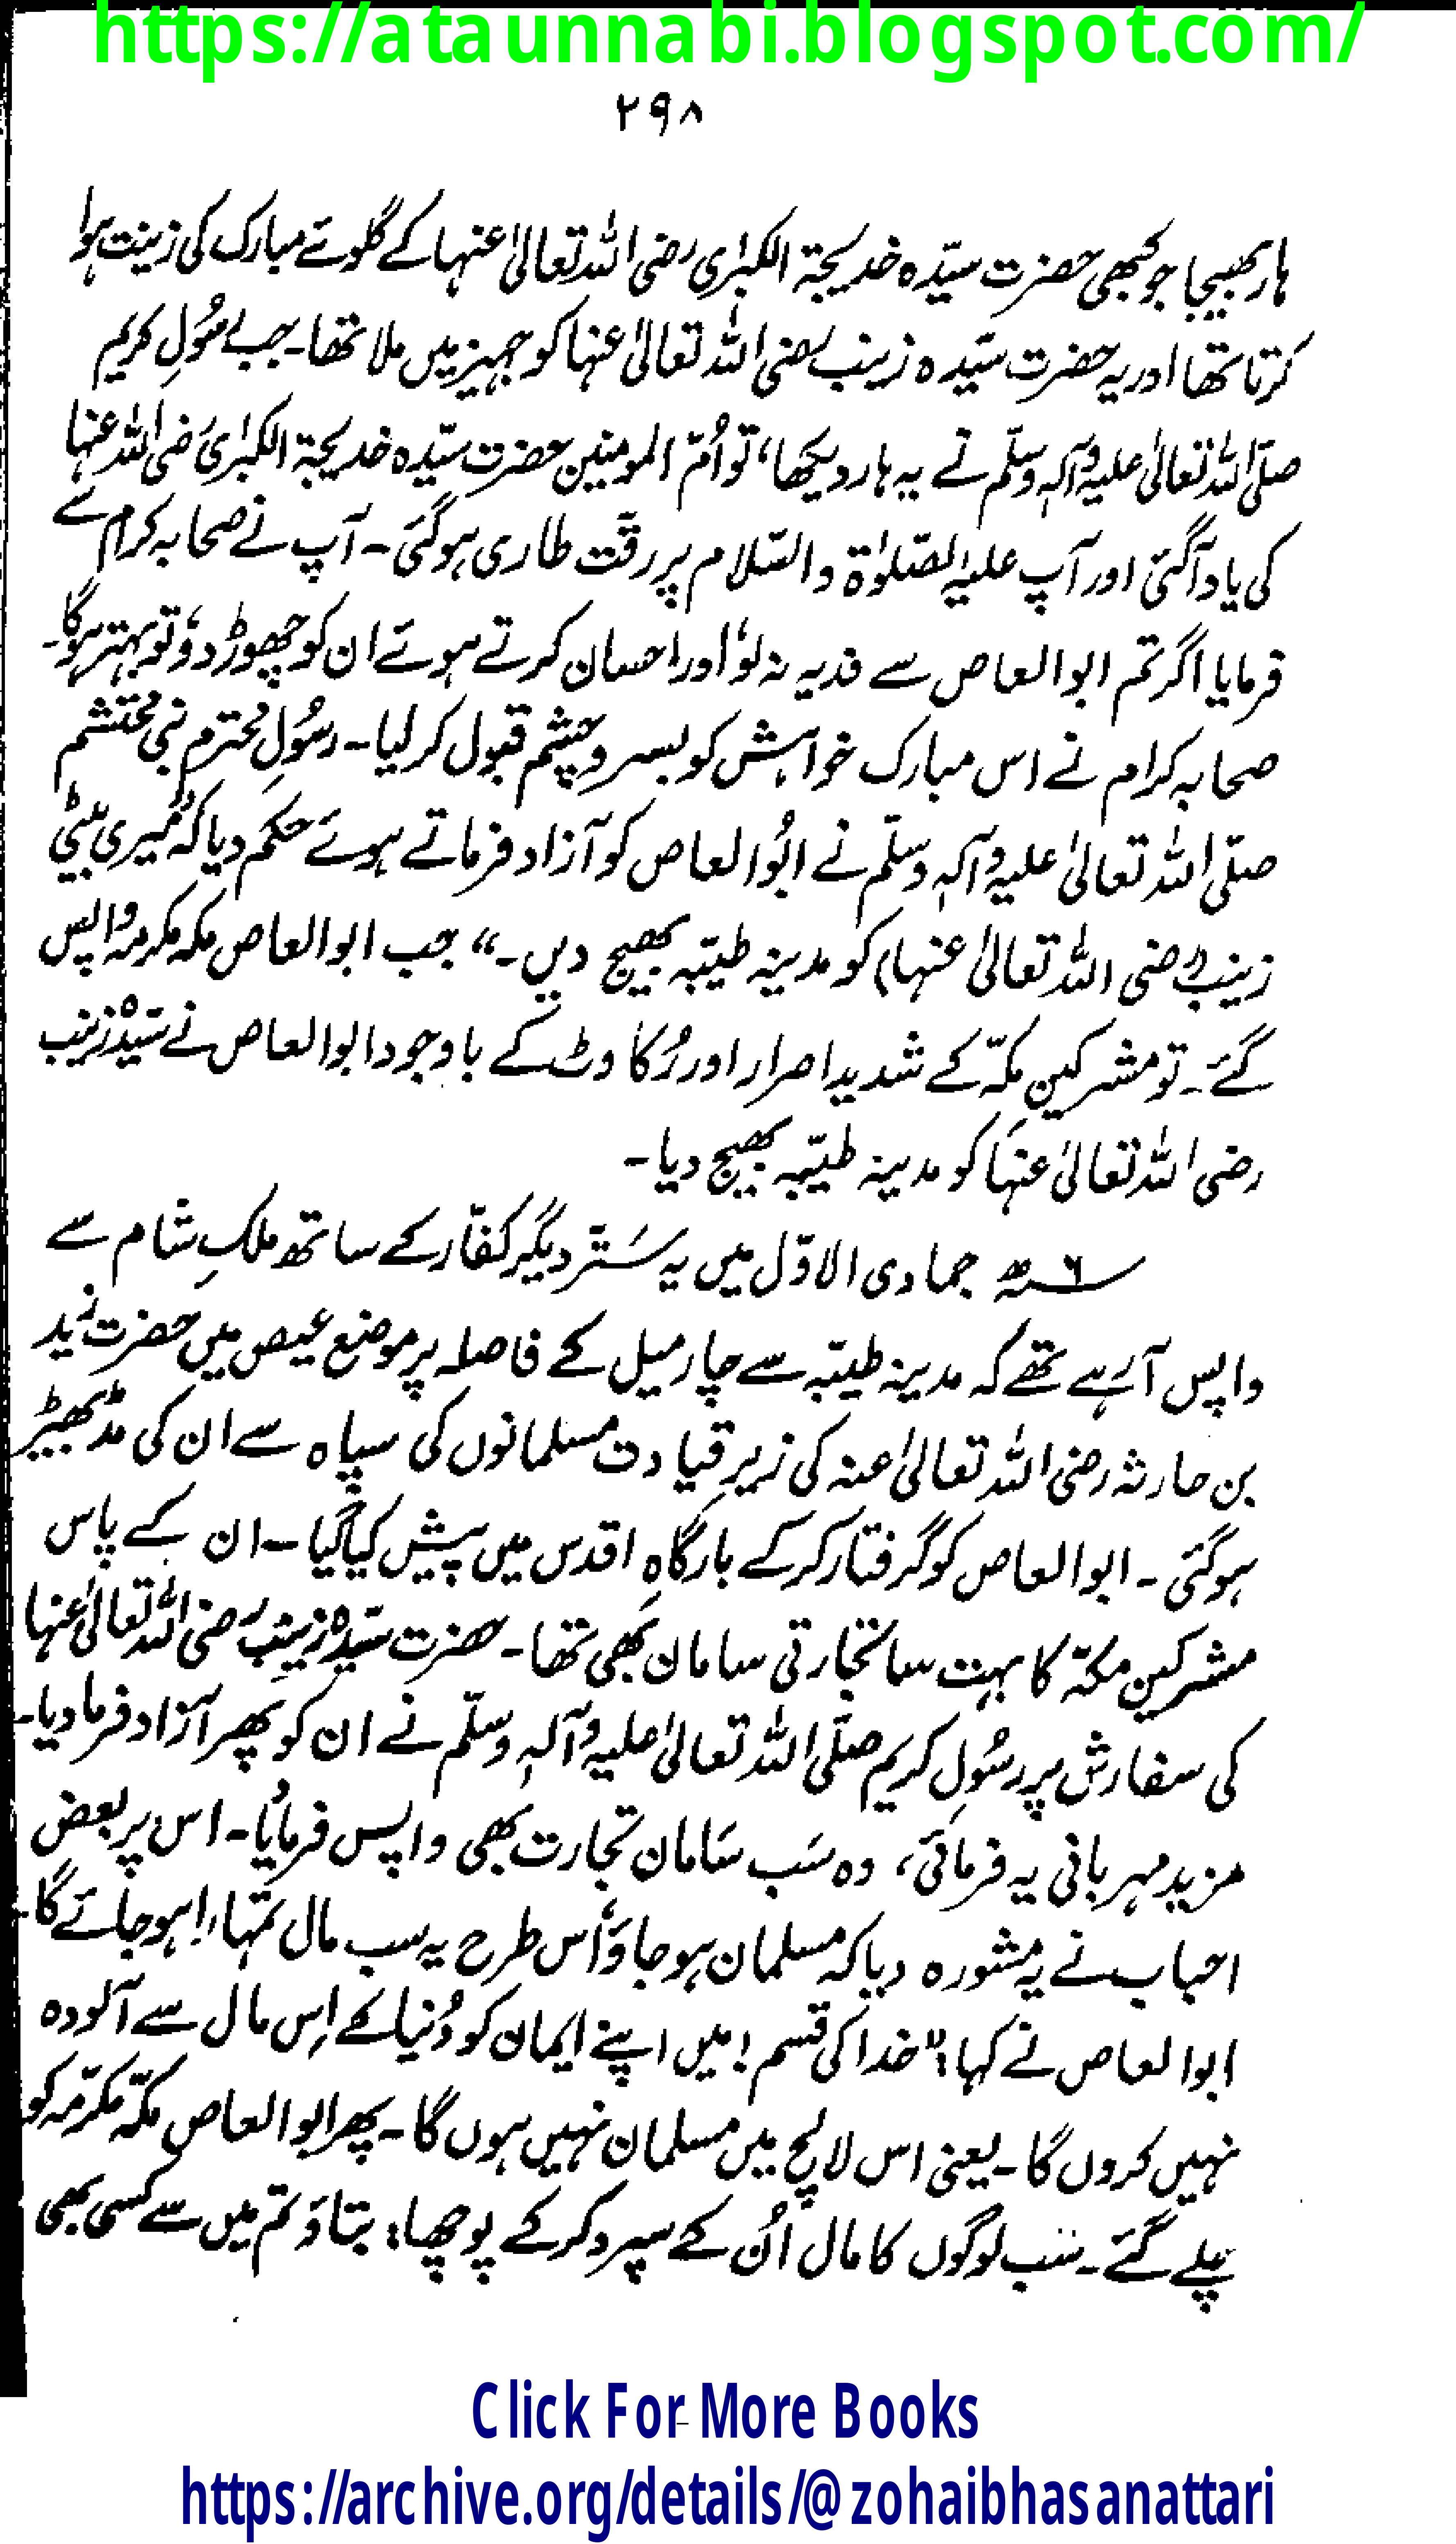 https://ataunnabi.blogspot.com/
۲۹۸
ہار بھیجا جو کبھی حضرت سیّدہ خدیجۃ الکبرٰی رضی اللہ تعالیٰ عنہا کے گلوئے مبارک کی زینت ہوا
کرتا تھا اور یہ حضرت سیّدہ زینب رضی اللہ تعالیٰ عنہا کو جہیز میں ملا تھا۔ جب رسُولِ کریم
صلّی اللہ تعالیٰ علیہ وآلہٖ وسلّم نے یہ ہار دیکھا، تو اُمّ المومنین حضرت سیّدہ خدیجۃ الکبرٰی رضی اللہ عنہا
کی یاد آگئی اور آپ علیہ الصّلوٰۃ والسّلام پر رقّت طاری ہوگئی۔ آپ نے صحابہ کرام سے
فرمایا اگر تم ابوالعاص سے فدیہ نہ لو، اور احسان کرتے ہوئے ان کو چھوڑ دو، تو بہتر ہوگا۔
صحابہ کرام نے اس مبارک خواہش کو بسر وچشم قبول کر لیا۔ رسُولِ محترم نبی محتشم
صلّی اللہ تعالیٰ علیہ وآلہٖ وسلّم نے ابُوالعاص کو آزاد فرماتے ہوئے حکم دیا کہ ”میری بیٹی
زینب (رضی اللہ تعالیٰ عنہا) کو مدینہ طیّبہ بھیج دیں۔“ جب ابوالعاص مکہ مکرمہ واپس
گئے۔ تو مشرکینِ مکّہ کے شدید اصرار اور رُکاوٹ کے باوجود ابوالعاص نے سیّدہ زینب
رضی اللہ تعالیٰ عنہا کو مدینہ طیّبہ بھیج دیا۔
۶ھ جمادی الاوّل میں یہ سَتّر دیگر کفّار کے ساتھ ملکِ شام سے
واپس آرہے تھے کہ مدینہ طیّبہ سے چار میل کے فاصلہ پر موضع عیص میں حضرت زید
بن حارثہ رضی اللہ تعالیٰ عنہ کی زیرِ قیادت مسلمانوں کی سپاہ سے ان کی مڈبھیڑ
ہوگئی۔ ابوالعاص کو گرفتار کرکے بارگاہِ اقدس میں پیش کیا گیا۔ ان کے پاس
مشرکینِ مکّہ کا بہت سا تجارتی سامان بھی تھا۔ حضرت سیّدہ زینب رضی اللہ تعالیٰ عنہا
کی سفارش پر رسُولِ کریم صلّی اللہ تعالیٰ علیہ وآلہٖ وسلّم نے ان کو پھر آزاد فرما دیا۔
مزید مہربانی یہ فرمائی، وہ سَب سَامان تجارت بھی واپس فرمایا۔ اس پر بعض
احباب نے یہ مشورہ دیا کہ مسلمان ہو جاؤ، اس طرح یہ سب مال تمہارا ہو جائے گا۔
ابوالعاص نے کہا: ”خدا کی قسم! میں اپنے ایمان کو دُنیا کے اِس مال سے آلودہ
نہیں کروں گا۔ یعنی اس لالچ میں مسلمان نہیں ہوں گا۔ پھر ابوالعاص مکّہ مکرّمہ کو
چلے گئے۔ سب لوگوں کا مال اُن کے سپرد کرکے پوچھا: بتاؤ تم میں سے کسی بھی
Click For More Books
https://archive.org/details/@zohaibhasanattari